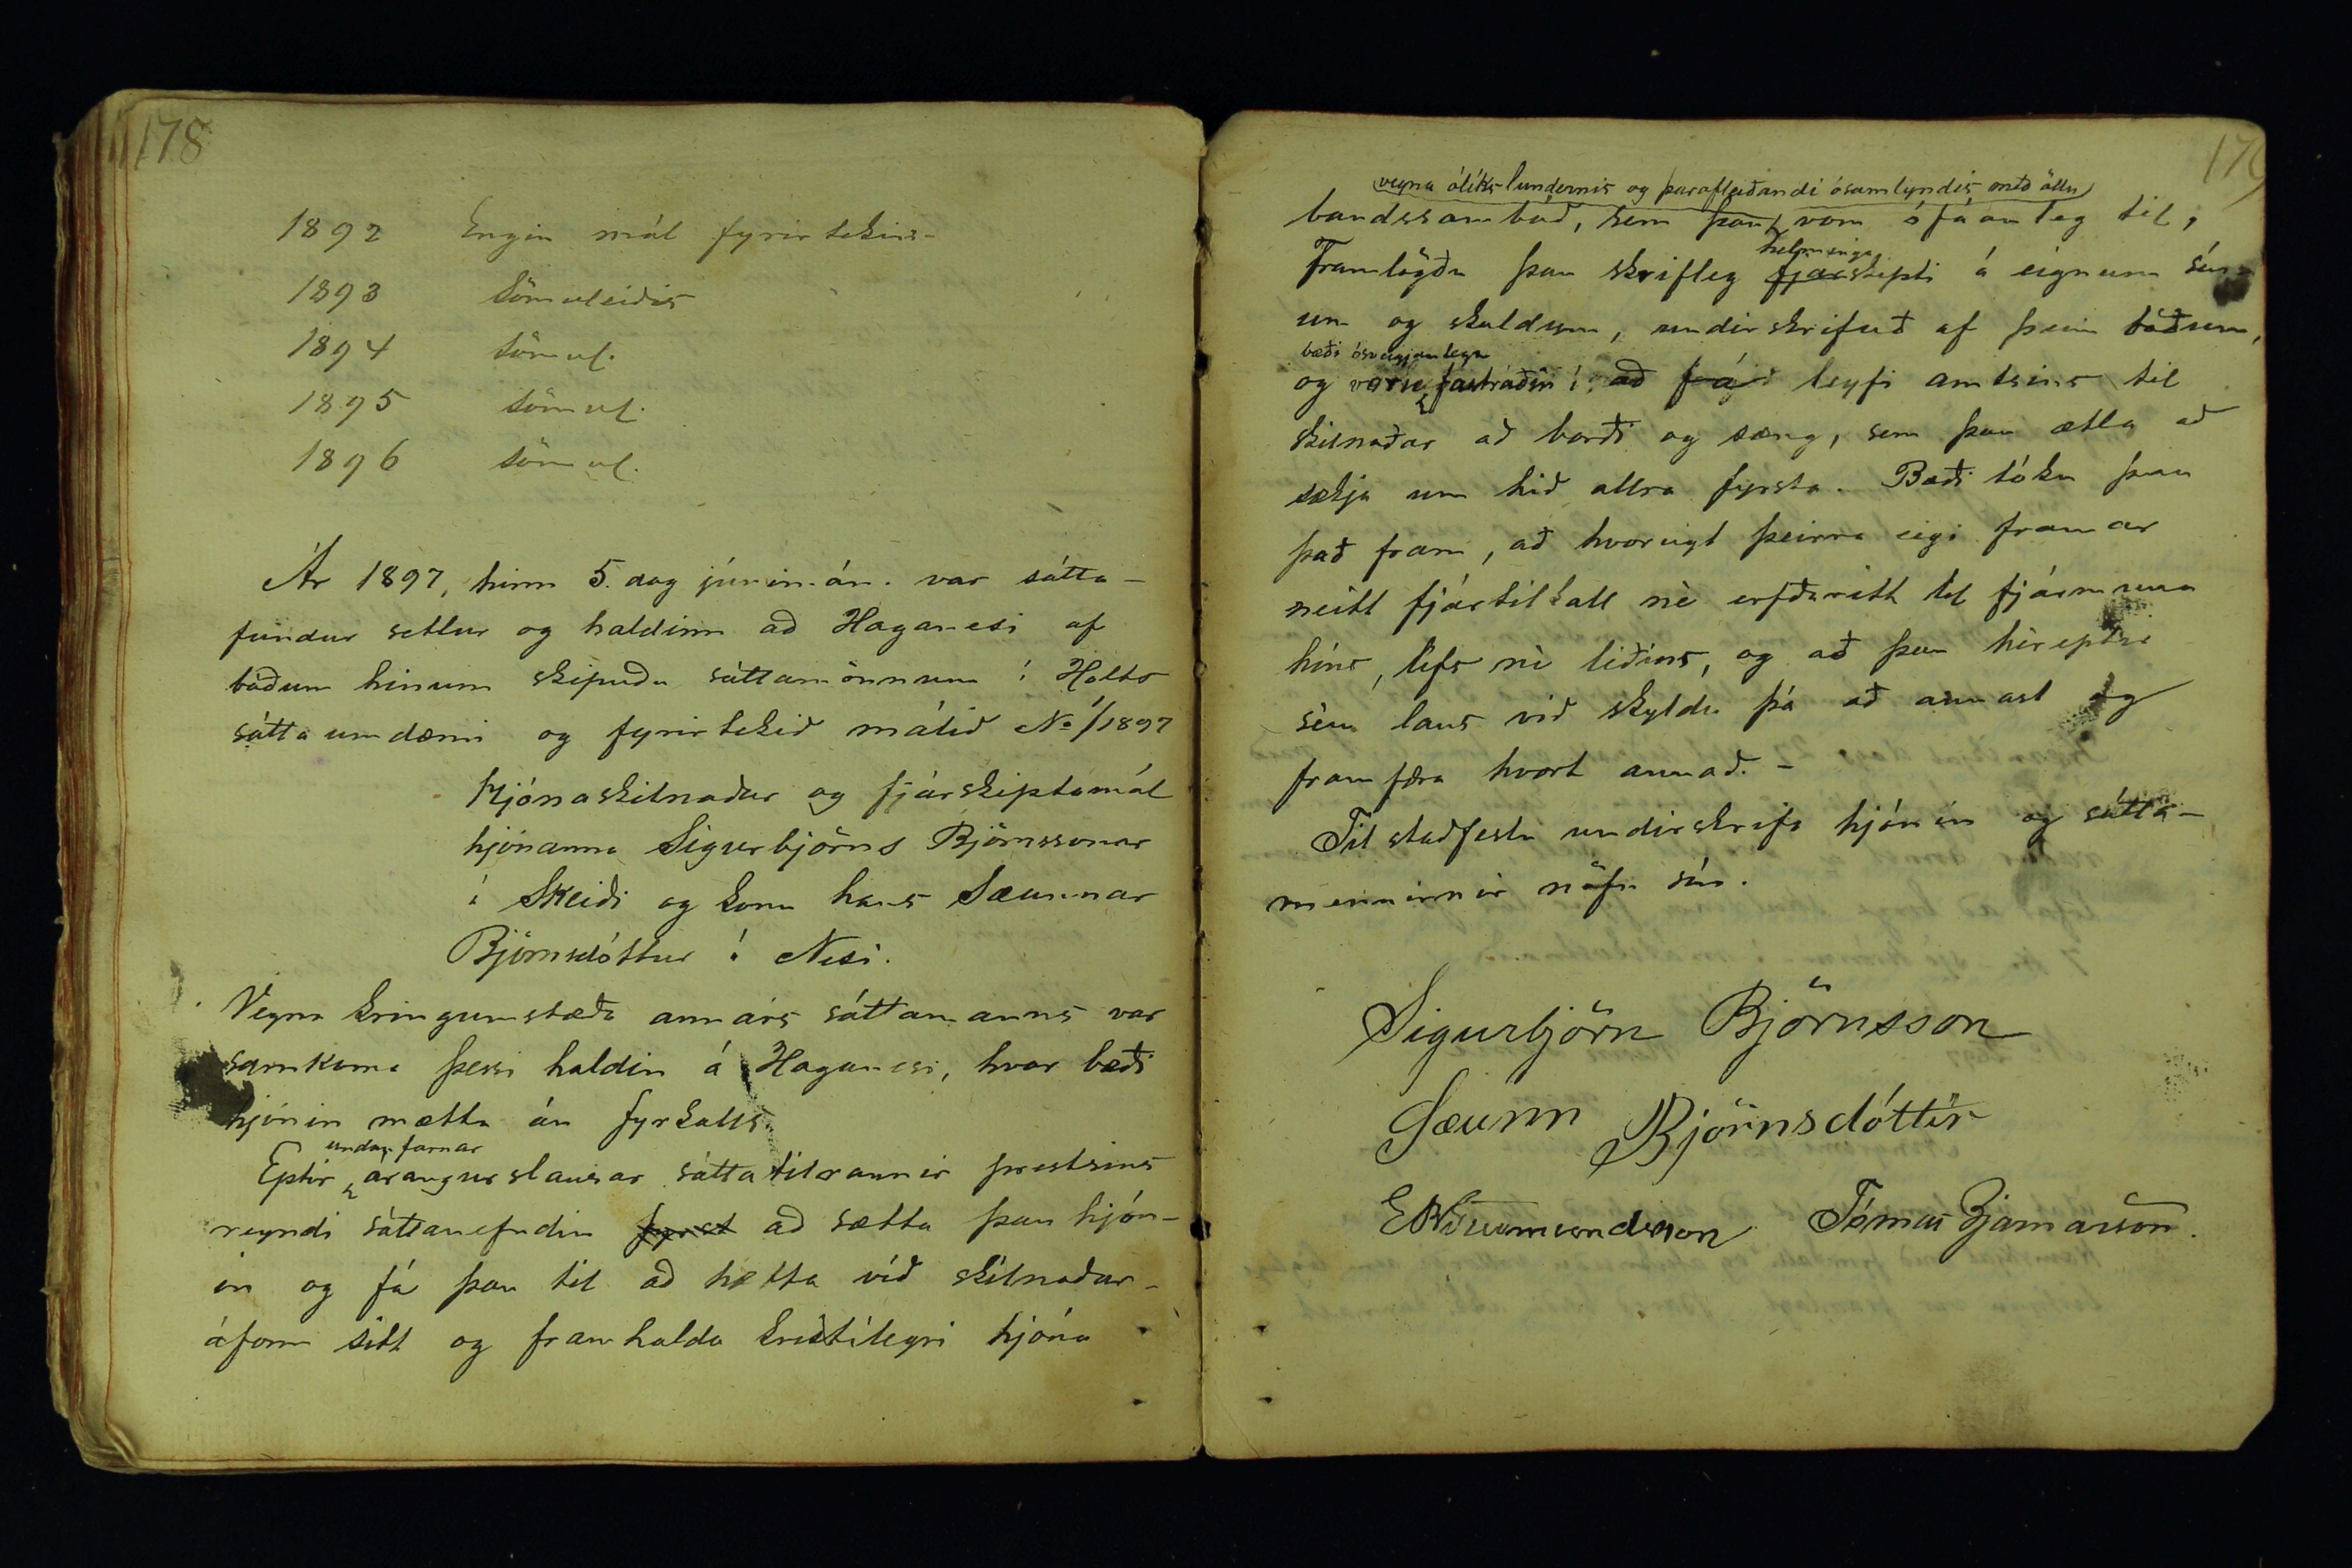 178
1892 Engin mál fyrirtekin-
1893 sömuleiðis
1894 sömul.
1895 sömul.
1896 sömul.
Ár 1897, hinn 5. dag júnímán. var sátta-
fundur settur og haldinn að Haganesi af
báðum hinum skipuðu sáttamönnum í Holts
sáttaumdæmi og fyrirtekið málið No 1/1897
Hjónaskilnaðar og fjárskiptamál
hjónanna Sigurbjörns Björnssonar
á Skeiði og konu hans Sæunnar
Björnsdóttur á Nesi.
Vegna kringumstæða annars sáttamanns var
samkoma þessi haldin á Haganesi, hvar bæði
hjónin mættu án fyrkalls.
undanfarnar
Eptir árangurslausar sáttatilraunir prestsins
reyndi sáttanefndin fyrst að sætta þau hjón-
in og fá þau til að hætta við skilnaðar-
áform sitt og framhalda kristilegri hjóna
179
vegna ólíks lundernis og þarafleiðandi ósamlyndis með öllu
bandssambúð, sem þau vom ófáanleg til,
helminga
Framlögðu þau skrifleg fjárskipti á eignum sín-
um og skuldum, undirskrifuð af þeim báðum,
bæði ósveigjanlega
og voru fastráðin í að fá leyfi amtsins til
skilnaðar að borði og sæng, sem þau ætla að
sækja um hið allra fyrsta. Bæði tóku þau
það fram, að hvorugt þeirra eigi framar
neitt fjártilkall nè erfðarétt til fjármuna
hins, lífs nè liðins, og að þau hèreptir
sèu laus við skyldu þá að annast og
framfæra hvort annað. -
Til staðfestu undirskrifa hjónin og sátta-
mennirnir nöfn sín.
Sigurbjörn Björnsson
Sæunn Björnsdóttir
E B Guðmundsson Tómas Bjarnarson.